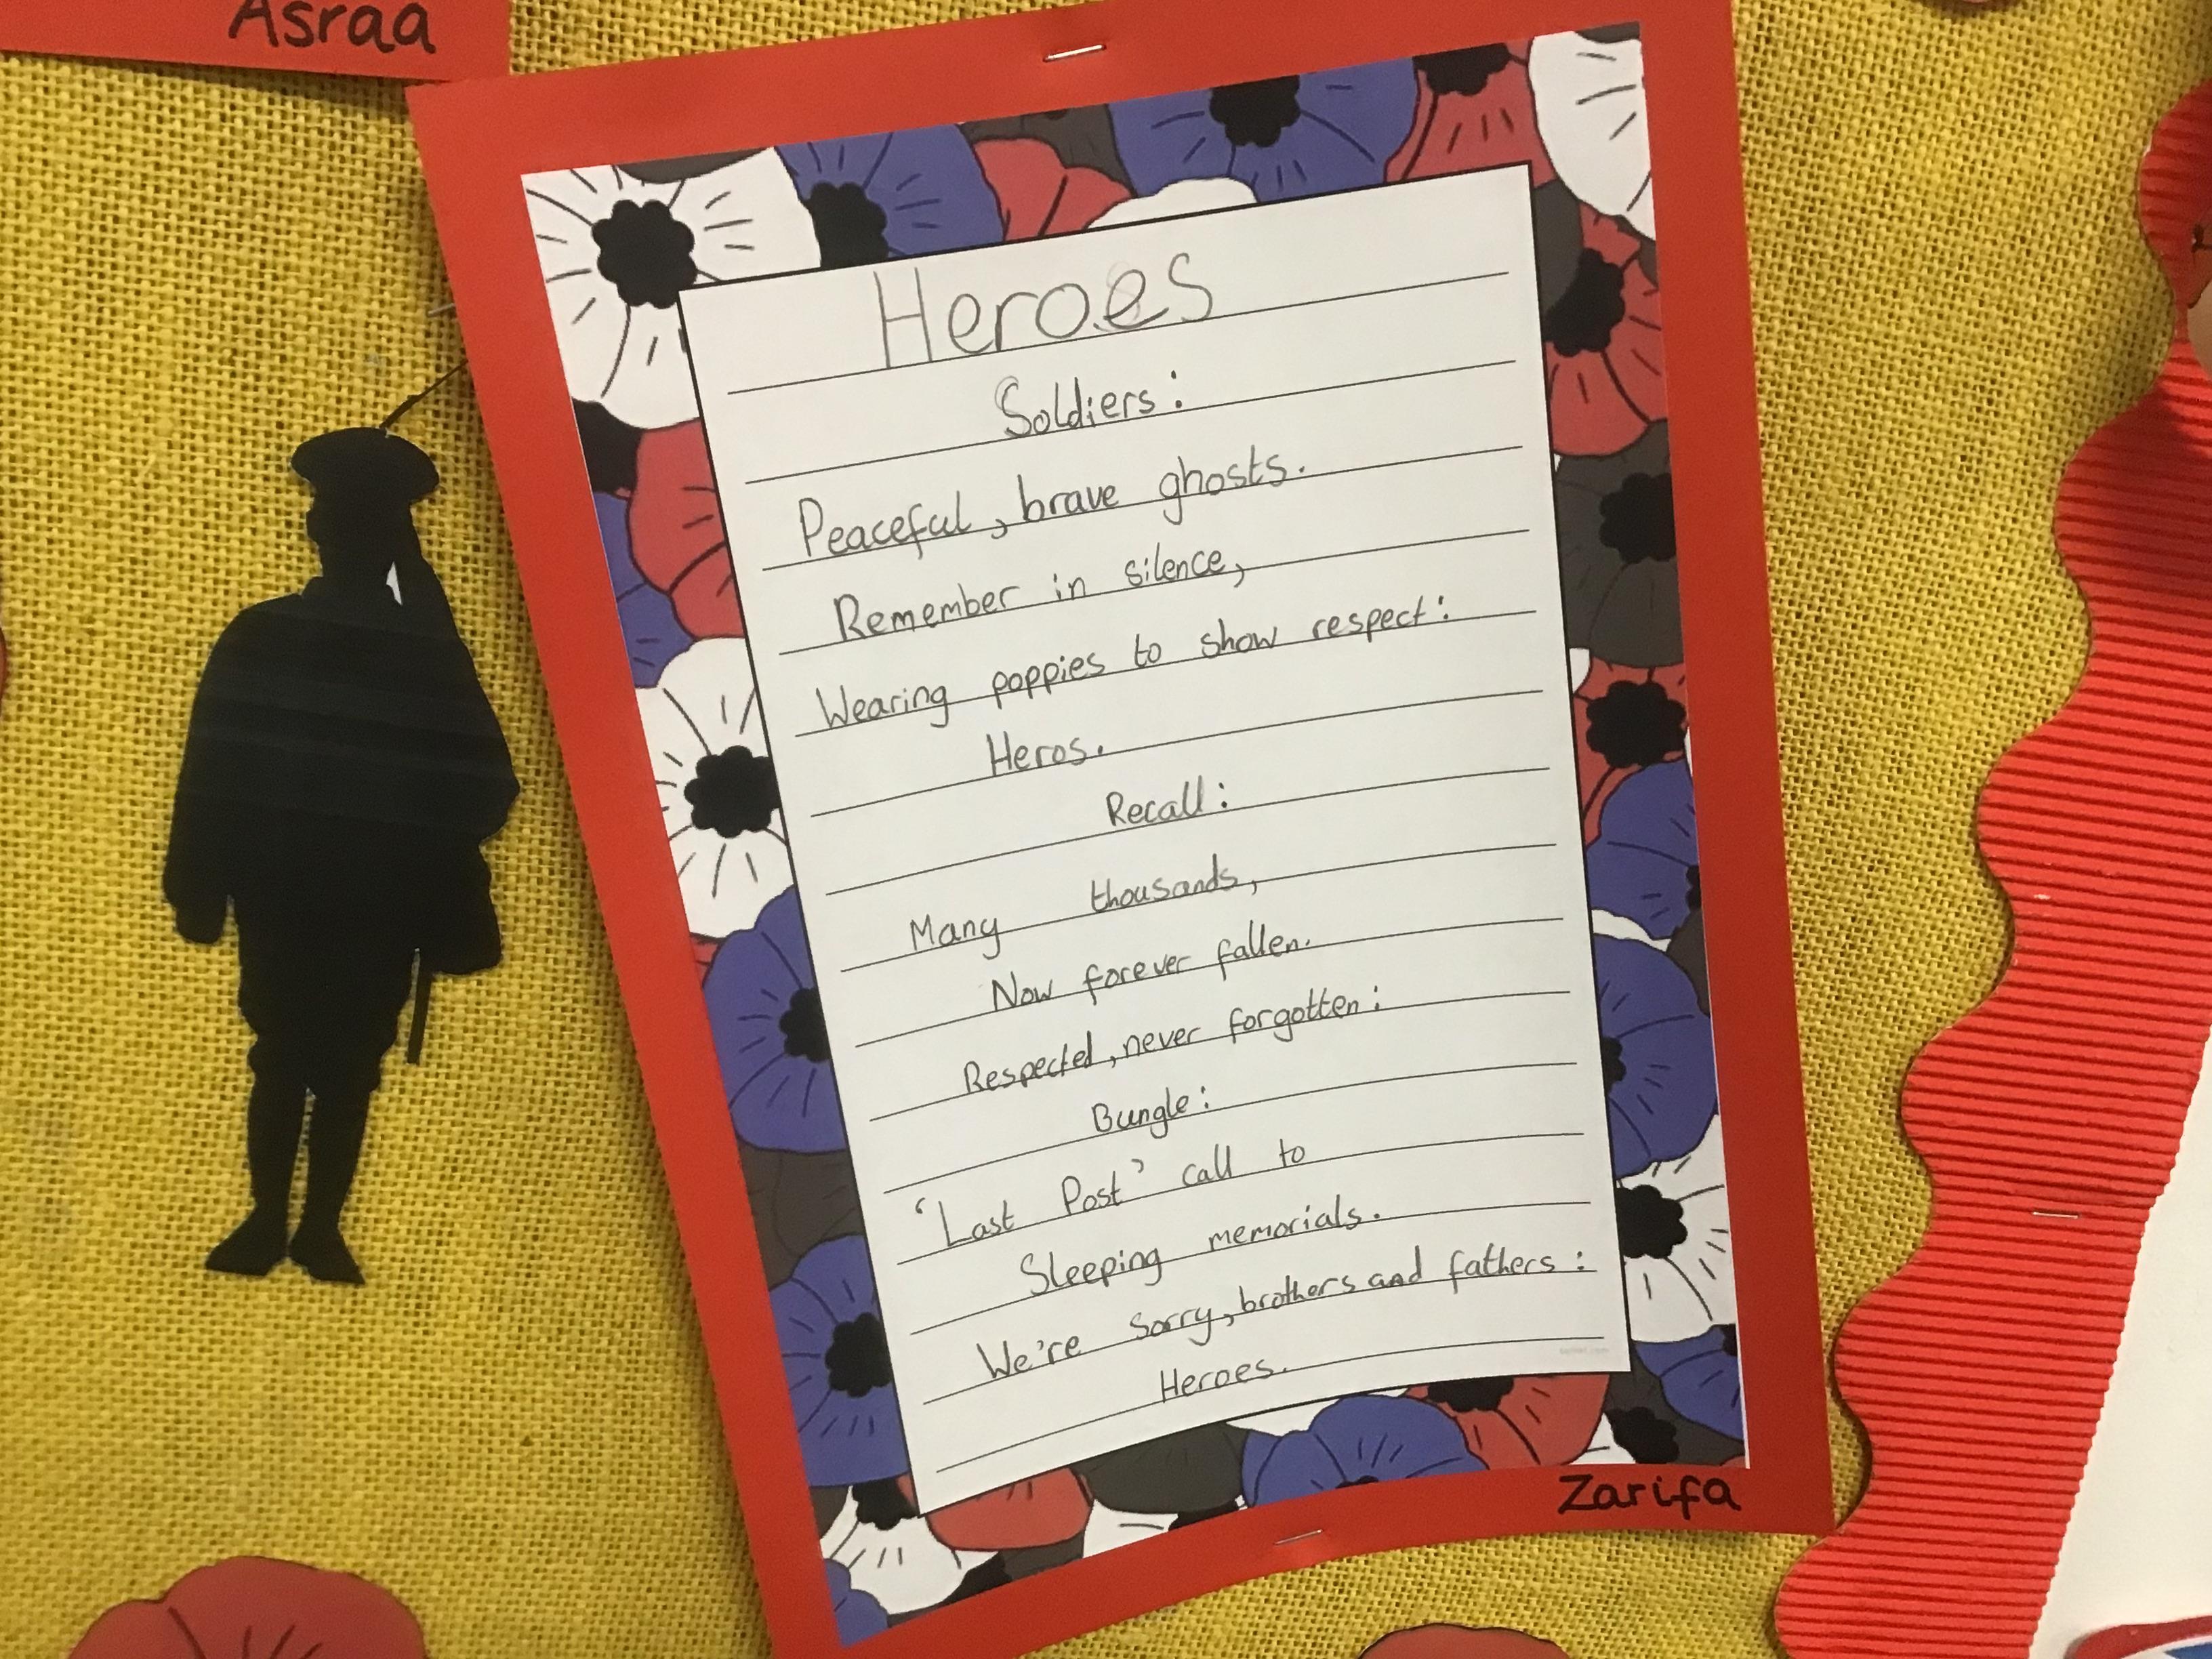 Asraa
Heroes
Soldiers:
Peaceful, brave ghosts.
Remember in silence,
Wearing poppies to show respect:
Heros.
Recall:
Many thousands,
Now forever fallen.
Respected, never forgotten:
Bungle:
'Last Post' call to
Sleeping memorials.
We're sorry, brothers and fathers:
Heroes.
Zarifa